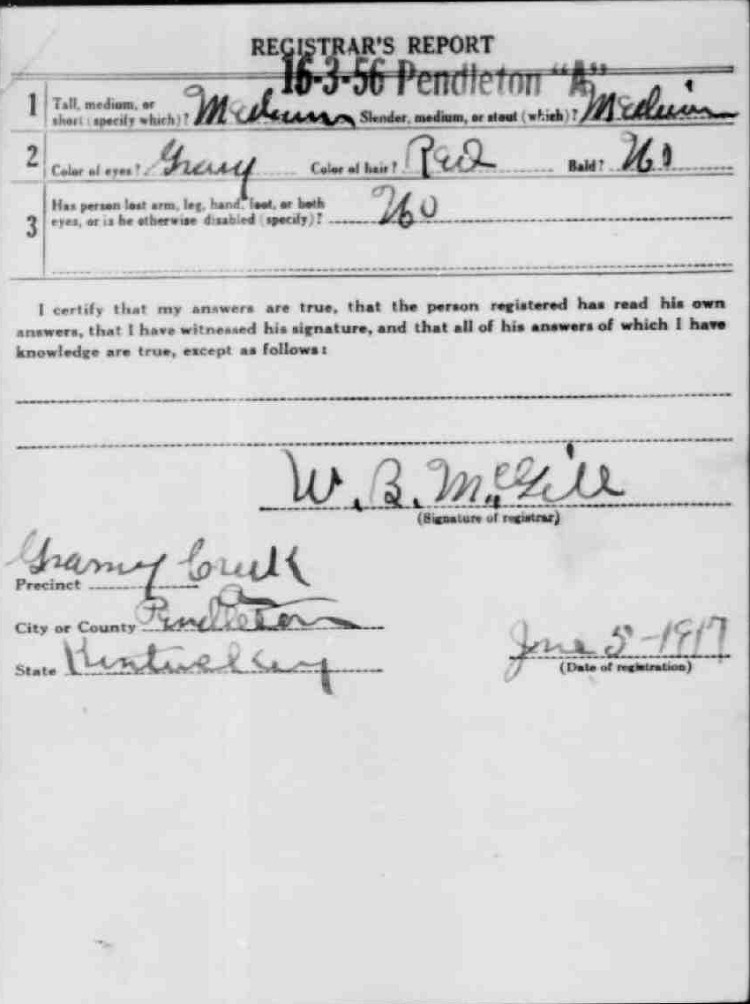 REGISTRAR'S REPORT
16-3-56 Pendleton "A"
1 Tall, medium, or short (specify which)? Medium Slender, medium, or stout (which)? Medium
2 Color of eyes? Gray Color of hair? Red Bald? No
3 Has person lost arm, leg, hand, foot, or both
eyes, or is he otherwise disabled (specify)? No
I certify that my answers are true, that the person registered has read his own
answers, that I have witnessed his signature, and that all of his answers of which I have
knowledge are true, except as follows:
W. B. McGill
(Signature of registrar)
Precinct Grassy Creek
City or County Pendleton
State Kentuckey
June 5-1917
(Date of registration)